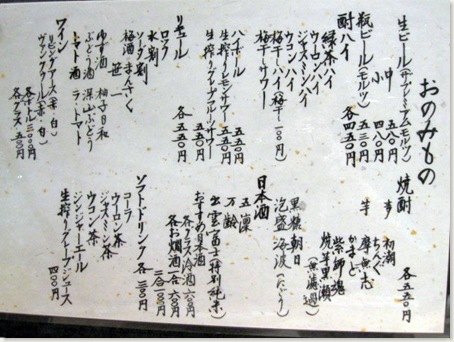 おのみもの
生ビール(サプレミアムモルツ)
中 五八〇円
小 四八〇円
瓶ビール(モルツ) 五三〇円
酎ハイ 各四五〇円
緑茶ハイ
ウーロンハイ
ジャスミンハイ
ウコンハイ
梅干しハイ(梅干一〇〇円)
梅干しサワー
ハイボール 五五〇円
生搾りレモンサワー 五五〇円
生搾りグレープフルーツサワー
リキュール 各五五〇円
ロック
水割
ソーダ割
梅酒 まんさく
笹一
ゆず酒 柚子日和
ぶどう酒 深山ぶどう
トマト酒 ラトマト
ワイン
各グラス
焼酎 各五五〇円
麦
初潮
ちんぐ
芋
摩無志
かまど
紫師魂
焼芋黒瀬
(無濾過)
黒糖 朝日
泡盛 海波
日本酒
五凛
万齢
出雲富士 特別純米
おすすめ日本酒
各グラス冷酒 六〇〇円
各お燗酒 一合 六〇〇円
ソフトドリンク
コーラ
ウーロン茶
ジャスミン茶
ウコン茶
ジンジャーエール
生搾りグレープジュース